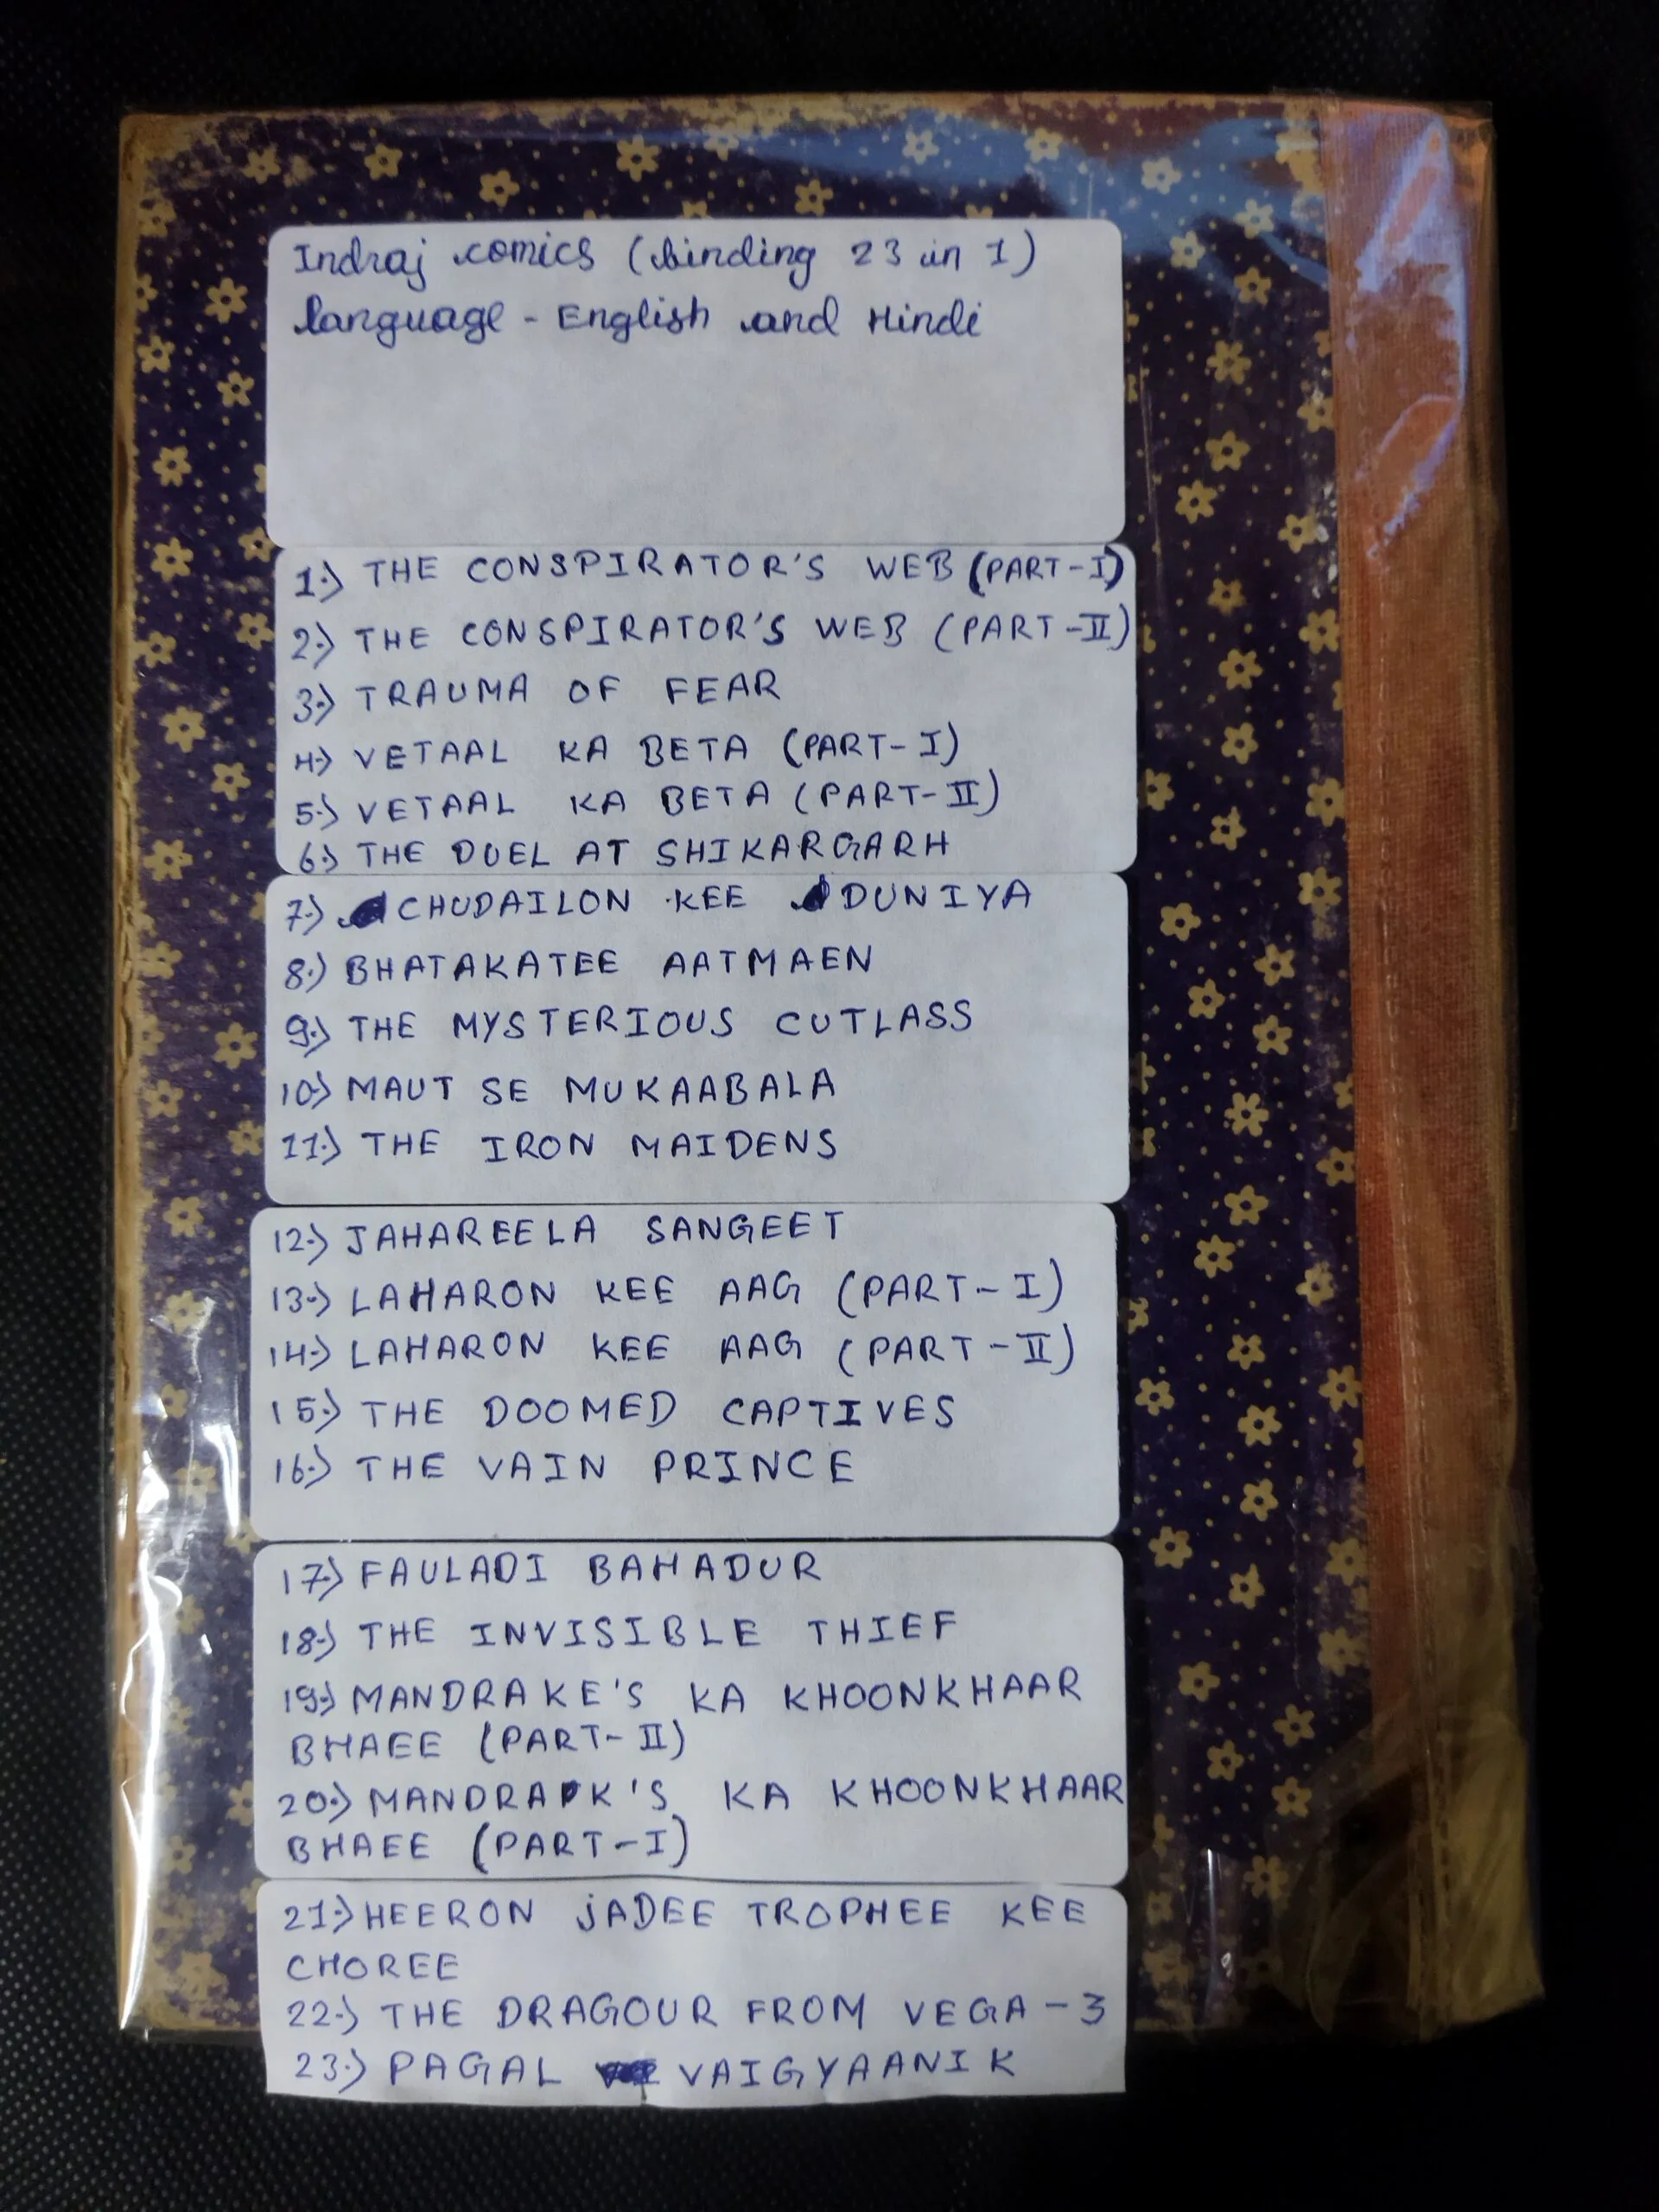 Indraj comics (binding 23 in 1)
language - English and Hindi
1.) THE CONSPIRATOR'S WEB (PART-I)
2.) THE CONSPIRATOR'S WEB (PART-II)
3.) TRAUMA OF FEAR
4.) VETAAL KA BETA (PART-I)
5.) VETAAL KA BETA (PART-II)
6.) THE DUEL AT SHIKARGARH
7.) CHUDAILON KEE DUNIYA
8.) BHATAKATEE AATMAEN
9.) THE MYSTERIOUS CUTLASS
10.) MAUT SE MUKAABALA
11.) THE IRON MAIDENS
12.) JAHAREELA SANGEET
13.) LAHARON KEE AAG (PART-I)
14.) LAHARON KEE AAG (PART-II)
15.) THE DOOMED CAPTIVES
16.) THE VAIN PRINCE
17.) FAULADI BAHADUR
18.) THE INVISIBLE THIEF
19.) MANDRAKE'S KA KHOONKHAAR
BHAEE (PART-II)
20.) MANDRAK'S KA KHOONKHAAR
BHAEE (PART-I)
21.) HEERON JADEE TROPHEE KEE
CHOREE
22.) THE DRAGOUR FROM VEGA-3
23.) PAGAL VAIGYAANIK